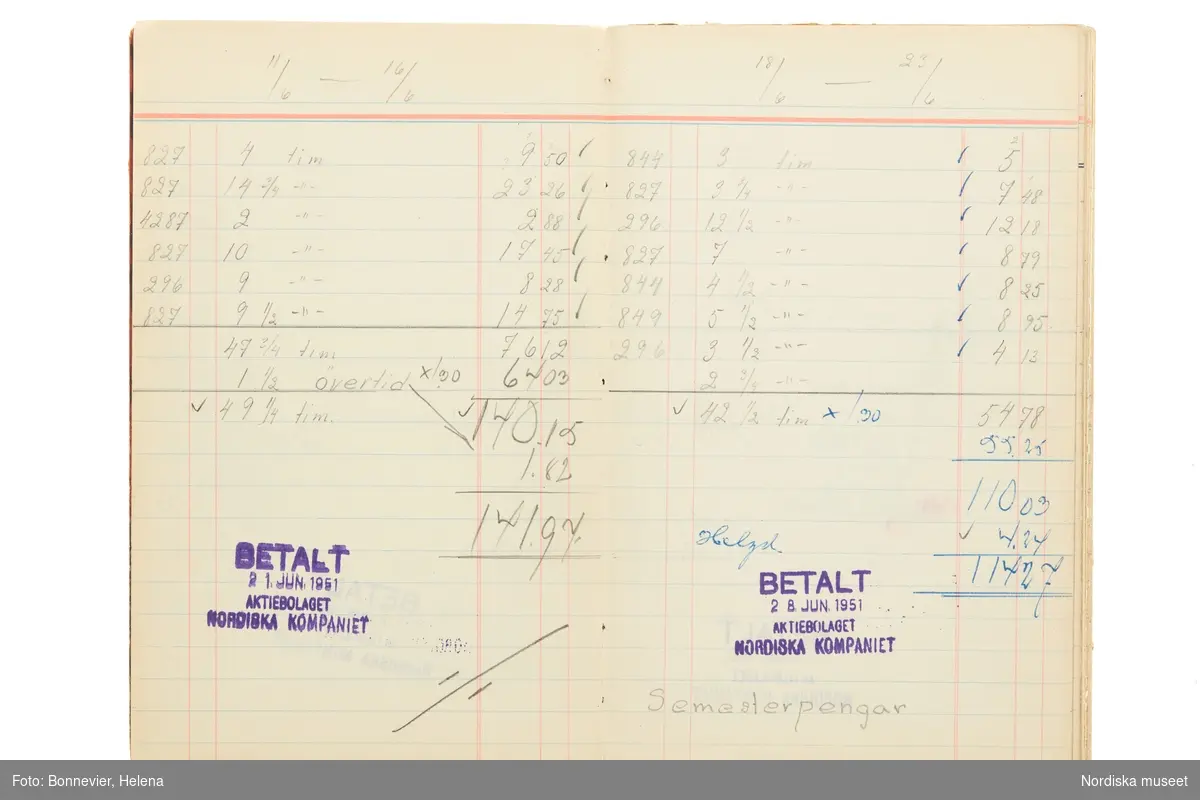 11/6 — 16/6
827 4 tim 9 50
827 14 3/4 -"- 23 26
4287 2 -"- 2 88
827 10 -"- 17 45
296 9 -"- 8 28
827 9 1/2 -"- 14 75
47 3/4 tim 76 12
1 1/2 övertid x 1.30 64 03
✓ 49 1/4 tim. ✓ 140.15
1.82
141.97.
BETALT
21. JUN. 1951
AKTIEBOLAGET
NORDISKA KOMPANIET
18/6 — 23/6
844 3 tim 5
827 3 3/4 -"- 7 48
296 12 1/2 -"- 12 18
827 7 -"- 8 79
844 4 1/2 -"- 8 25
849 5 1/2 -"- 8 95
296 3 1/2 -"- 4 13
2 3/4 -"-
✓ 42 1/2 tim x 1.30 54 78
55.25
110 03
Helgd. ✓ 4.24
114 27
BETALT
28 JUN. 1951
AKTIEBOLAGET
NORDISKA KOMPANIET
Semesterpengar
Foto: Bonnevier, Helena
Nordiska museet